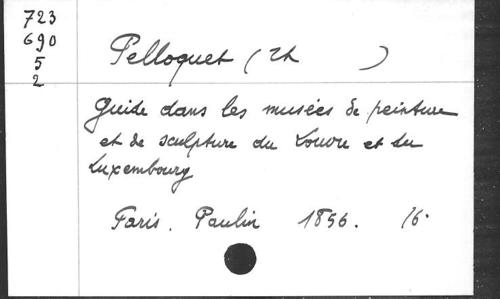 723
690
5
2
Pelloquet (Th )
Guide dans les musées de peinture
et de sculpture du Louvre et du
Luxembourg
Paris. Paulin 1856. 16°